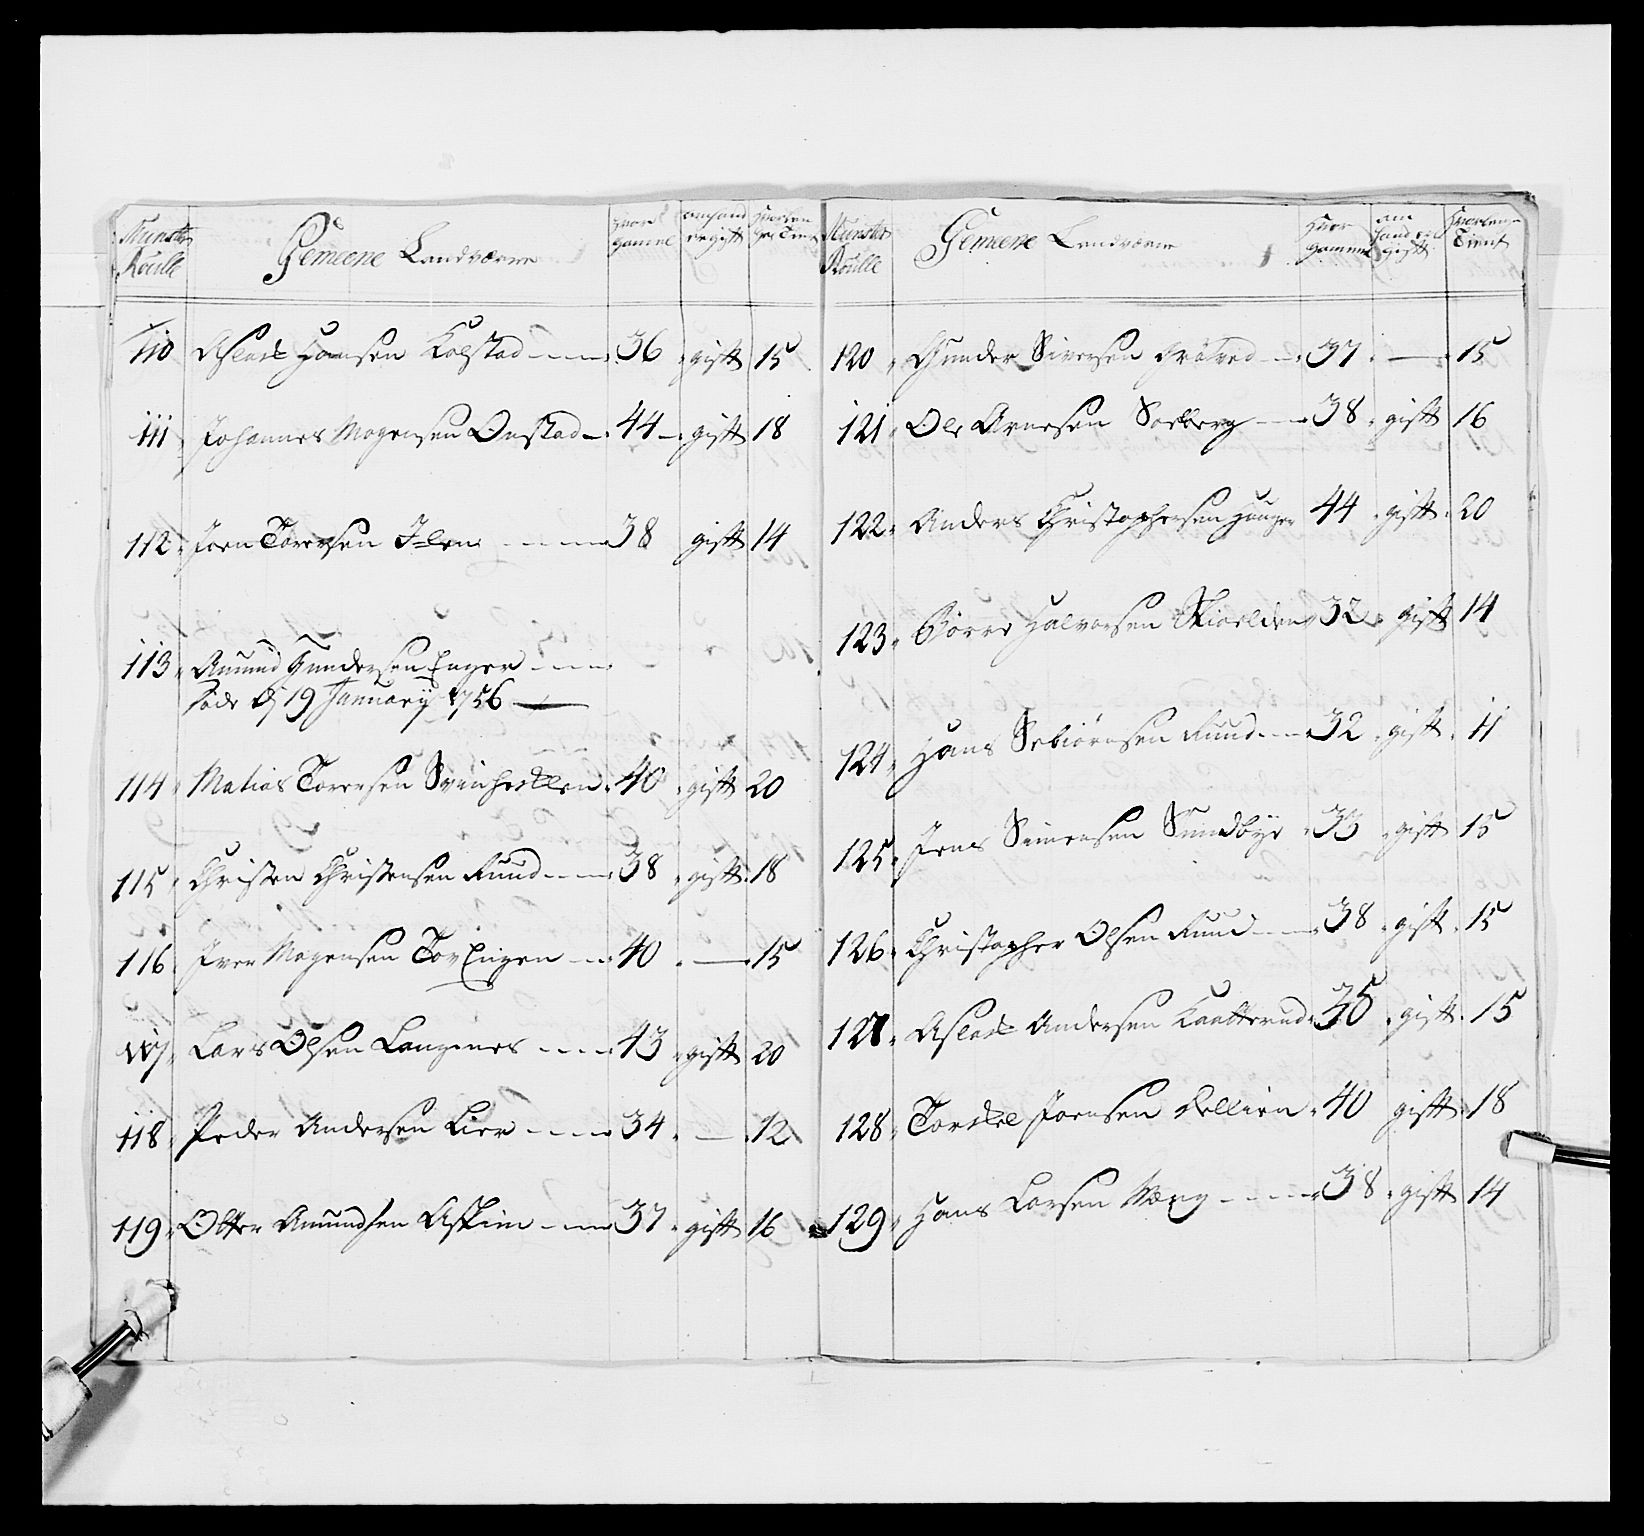 Munster Roulle | Gemeene Landværn | Hvor gammel | om hand er gift | Hvorlenge Tient
110 Aslach Hansen Kolstad 36 gift 15
111 Johannes Mogensen Onstad 44 gift 18
112 Joen Torersen Ilen 38 gift 14
113 Amund Gundersen Enger
døde d 19 Januarij 1756
114 Matias Torersen Svinhodlen 40 gift 20
115 Christen Christensen Ruud 38 gift 18
116 Iver Mogensen Tov Engen 40 — 15
117 Lars Olsen Langenes 43 gift 20
118 Peder Andersen Lier 34 — 12
119 Otter Amundsen Askim 37 gift 16
Munster Roulle | Gemeene Landværn | Hvor gammel | om hand er gift | Hvorlenge Tient
120 Gunder Siversen 37 — 15
121 Ole Arnesen Solberg 38 gift 16
122 Anders Christophersen Hauger 44 gift 20
123 Børre Halvorsen Skiolden 32 gift 14
124 Hans Sebiørnsen Ruud 32 gift 11
125 Jens Simensen Sundbye 33 gift 15
126 Christopher Olsen Ruud 38 gift 15
127 Aslach Andersen Knatterud 35 gift 15
128 Torchel Joensen 40 gift 18
129 Hans Larsen Wæng 38 gift 14